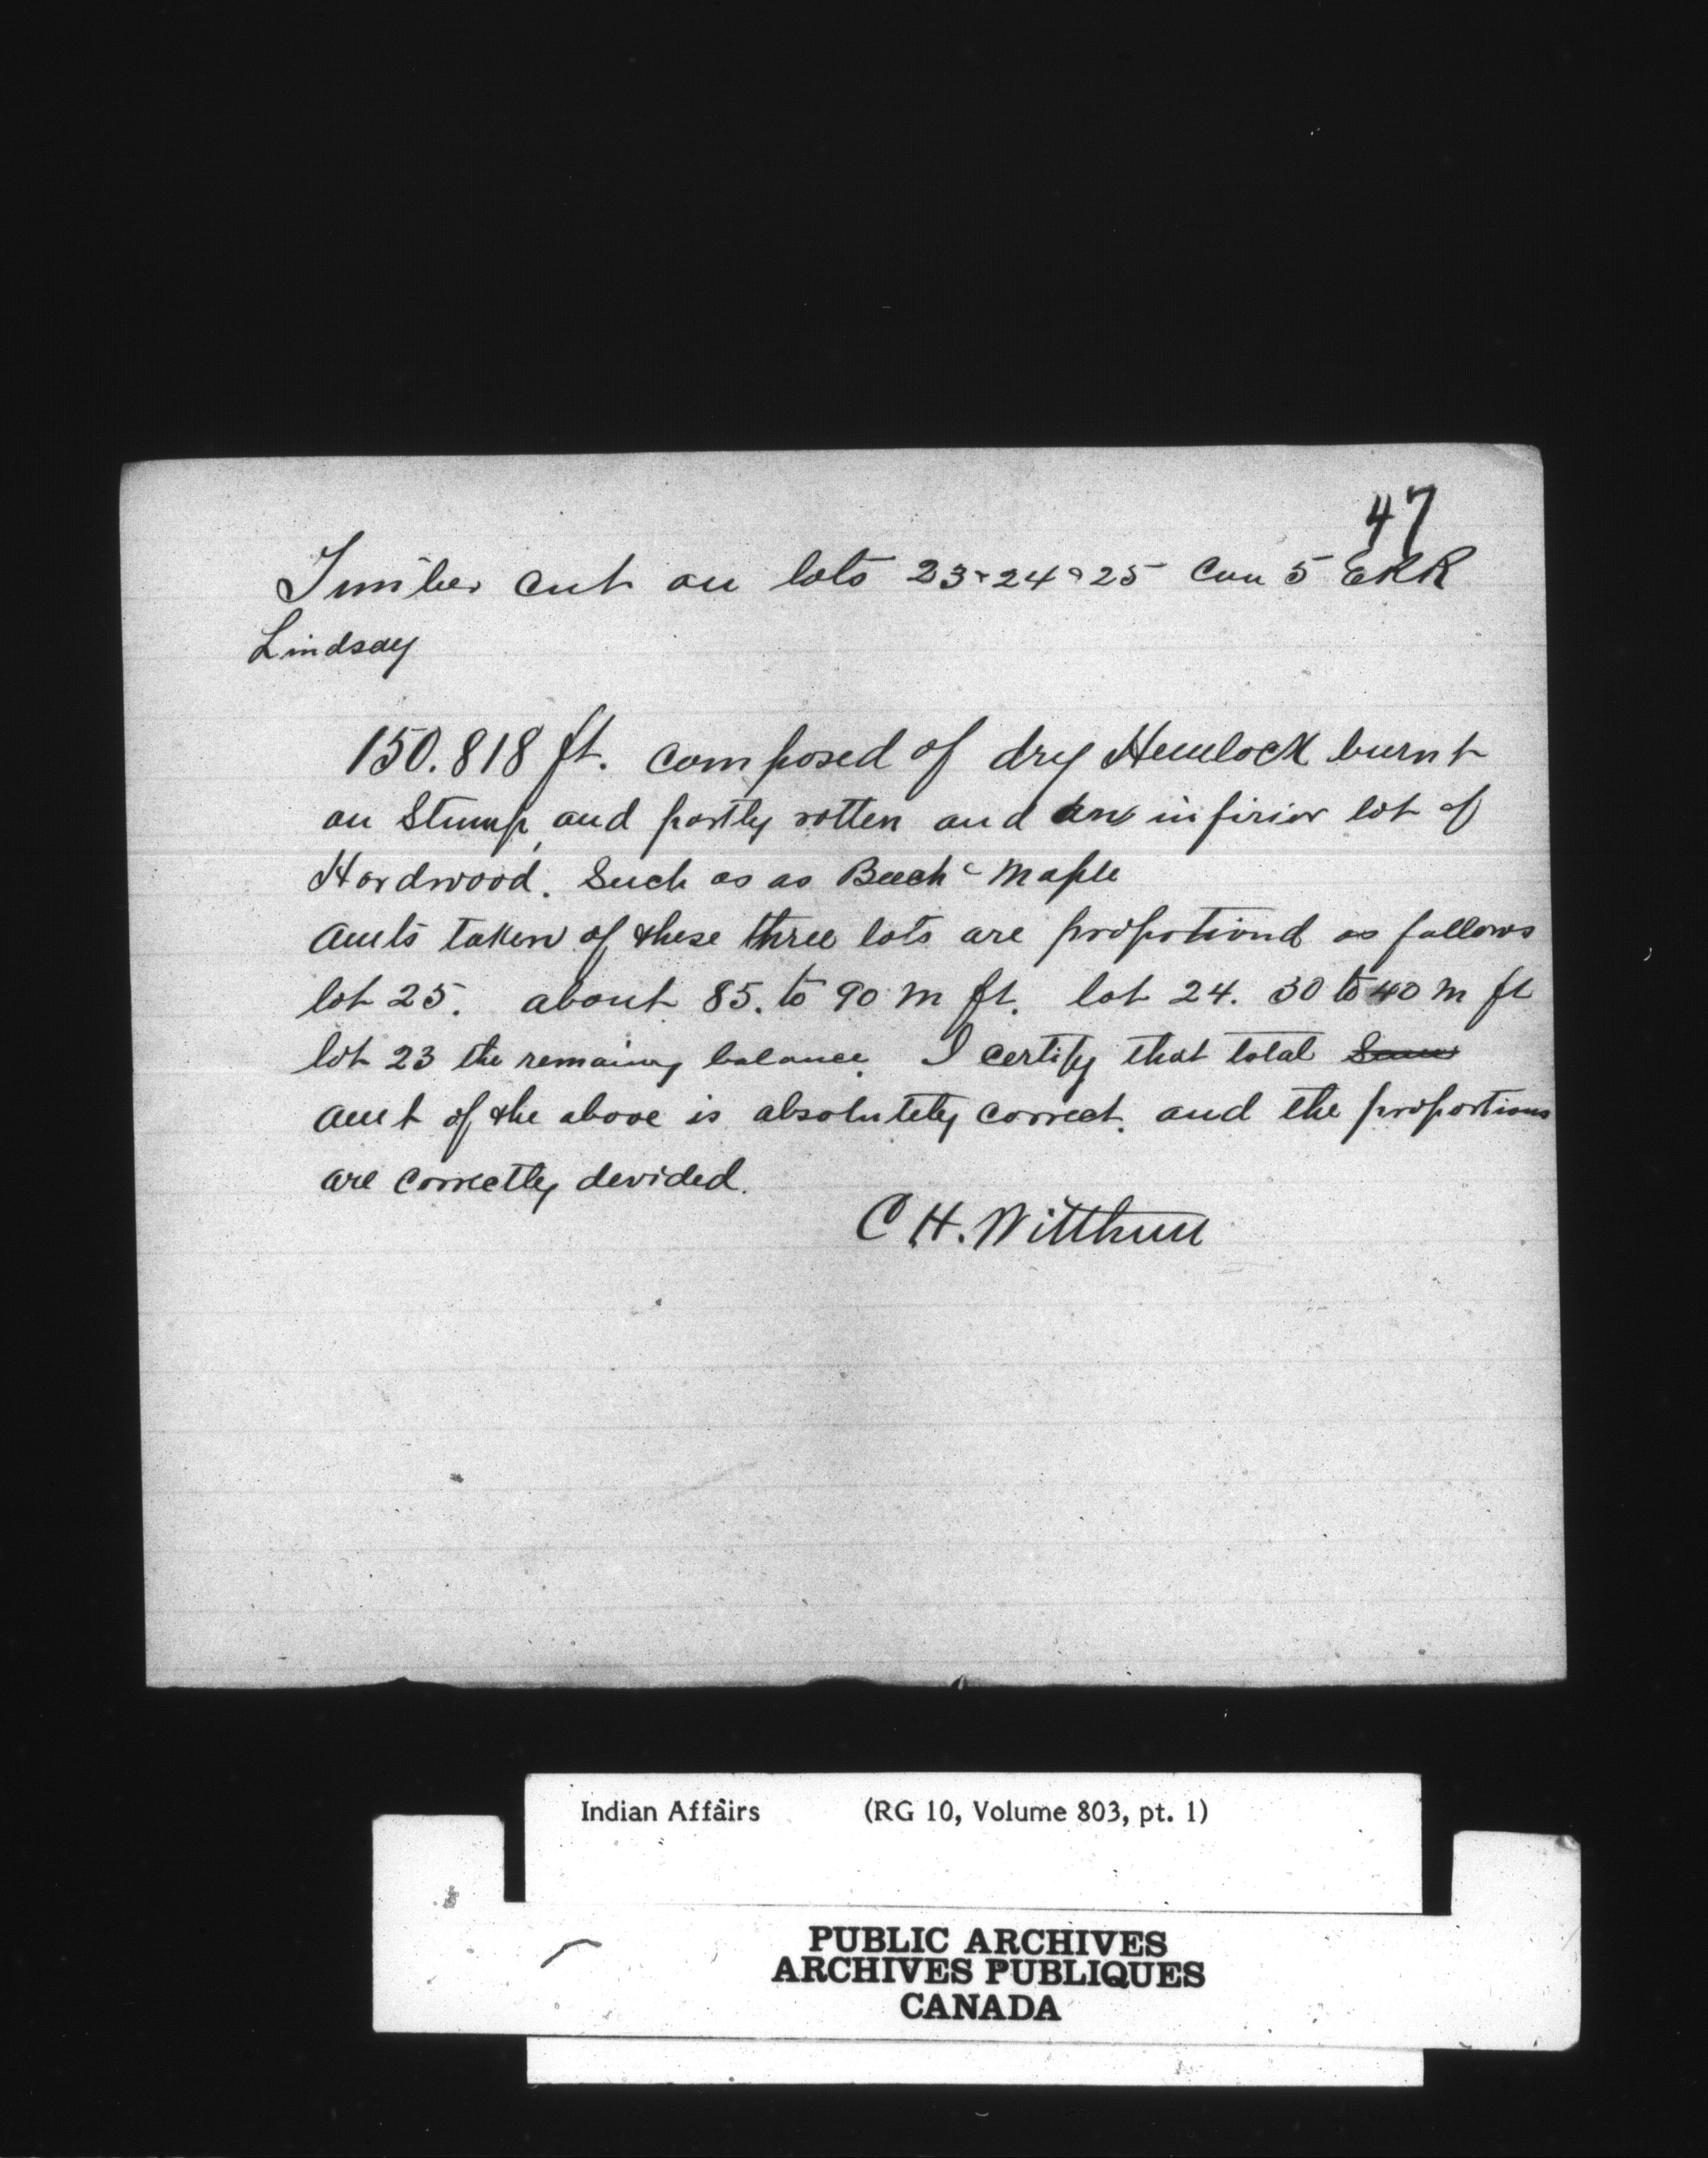 47
Timber cut on lots 23 & 24 & 25 Con 5 ERR
Lindsay
150.818 ft. composed of dry Hemlock burnt
on Stump, and partly rotten and an infirior lot of
Hardwood. Such as as Beech & Maple
Amts taken of these three lots are propotiond as follows
lot 25. about 85. to 90 m ft. lot 24. 30 to 40 m ft
lot 23 the remaing balance. I certify that total
amt of the above is absolutely correct. and the proportions
are correctly devided.
C H. Witthun
Indian Affairs (RG 10, Volume 803, pt. 1)
PUBLIC ARCHIVES
ARCHIVES PUBLIQUES
CANADA